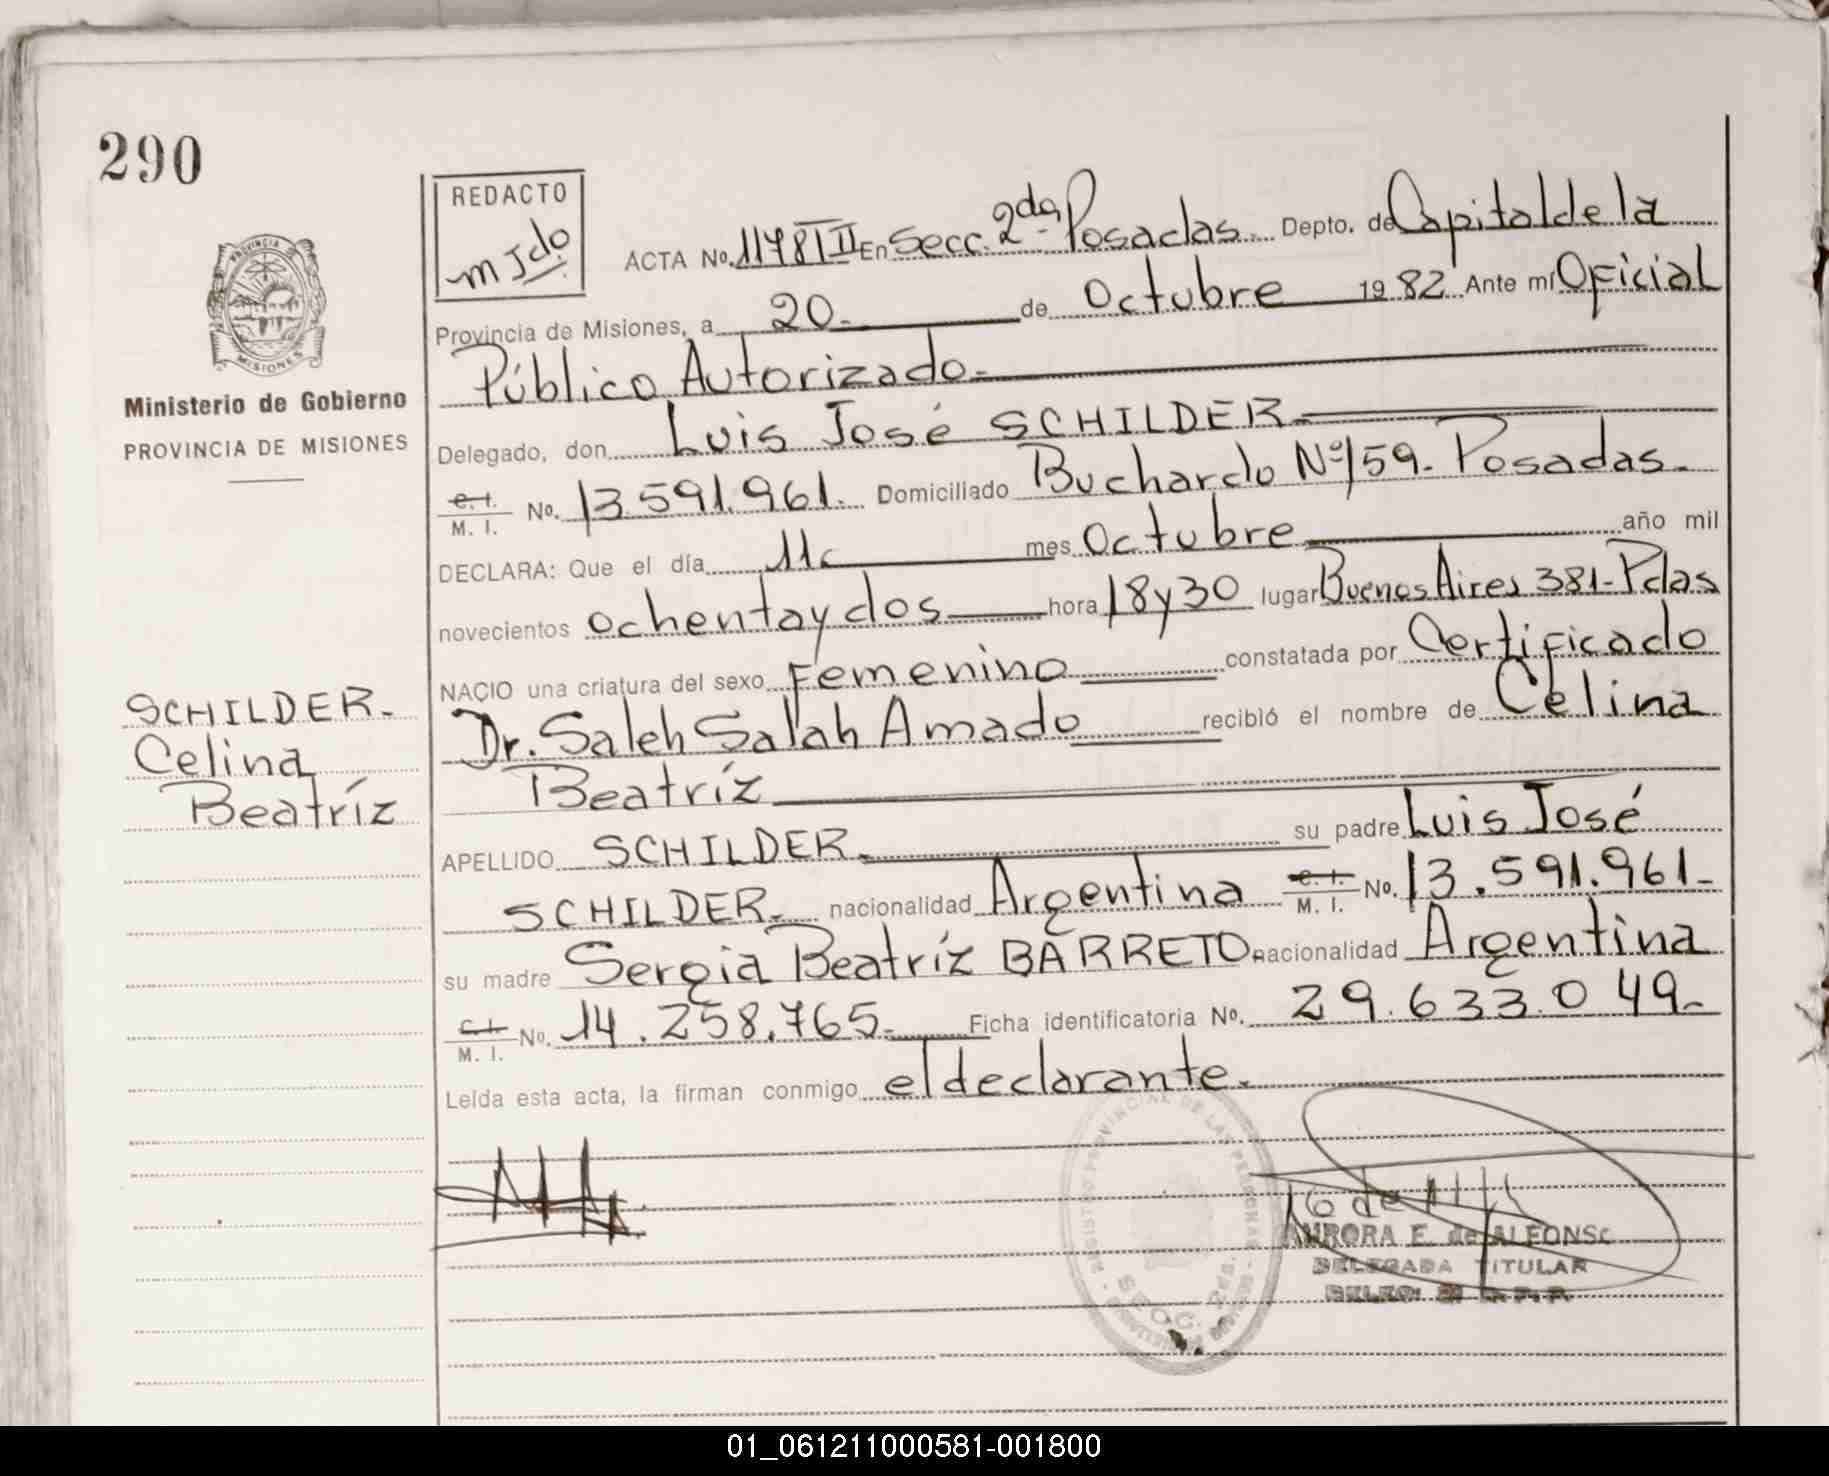 290
REDACTO
mJdo.
ACTA No. 1178 III En Secc. 2da. Posadas. Depto. de Capital de la
Provincia de Misiones, a 20. de Octubre 1982 Ante mí Oficial
Público Autorizado.
Delegado, don Luis José SCHILDER.
C. I. / M. I. No. 13.591.961. Domiciliado Buchardo Nº 159. Posadas.
DECLARA: Que el día 11 mes Octubre año mil
novecientos ochenta y dos hora 18 y 30 lugar Buenos Aires 381-Pdas
NACIO una criatura del sexo Femenino constatada por Certificado
Dr. Saleh Salah Amado recibió el nombre de Celina
Beatríz
APELLIDO SCHILDER. su padre Luis José
SCHILDER. nacionalidad Argentina C. I. / M. I. No. 13.591.961-
su madre Sergia Beatríz BARRETO nacionalidad Argentina
C. I. / M. I. No. 14.258.765- Ficha identificatoria No. 29.633.049-
Leída esta acta, la firman conmigo el declarante.
PROVINCIA DE
MISIONES
Ministerio de Gobierno
PROVINCIA DE MISIONES
SCHILDER.
Celina
Beatríz
REGISTRO PROVINCIAL DE LAS PERSONAS
SECC. 2
AURORA E. de ALFONSO
DELEGADA TITULAR
01_061211000581-001800